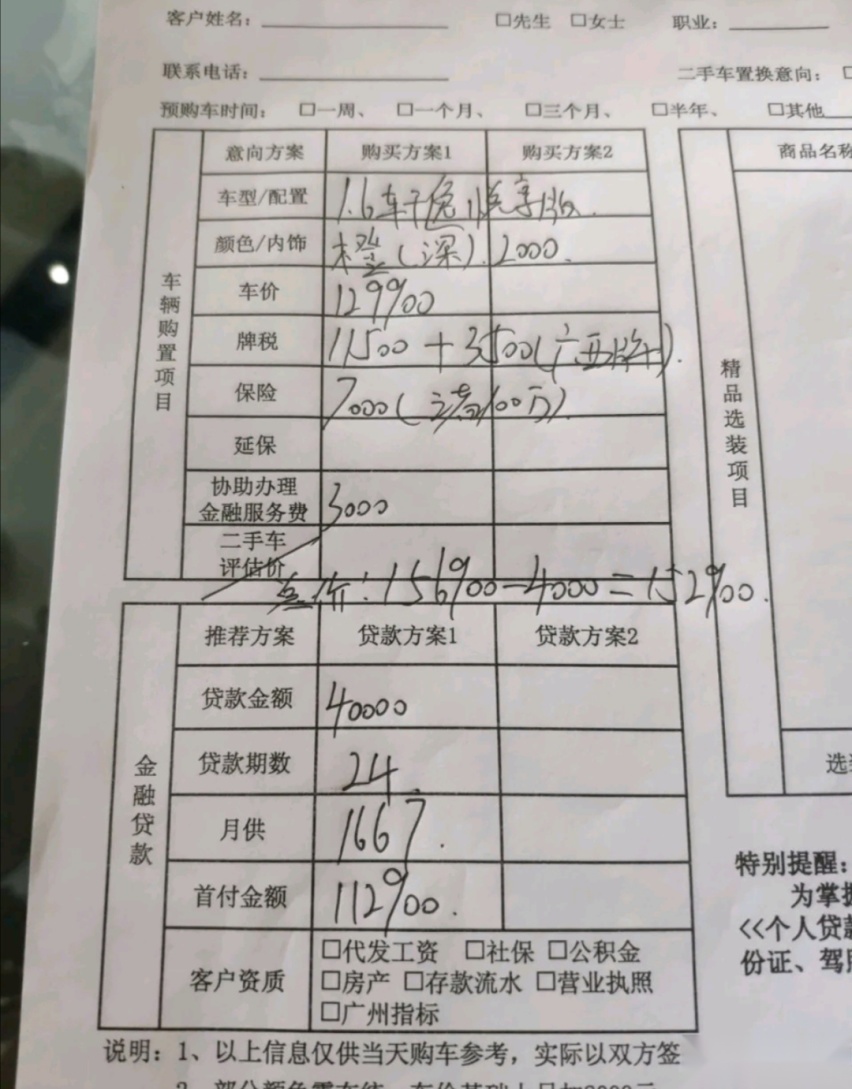 客户姓名： □先生 □女士 职业：
联系电话： 二手车置换意向：□
预购车时间： □一周、 □一个月、 □三个月、 □半年、 □其他
车辆购置项目
意向方案 购买方案1 购买方案2
车型/配置 1.6 享版.
颜色/内饰 橙(深).2000.
车价 129900
牌税 11500+3500(广西牌).
保险 7000(三者100万).
延保
协助办理
金融服务费 3000
二手车
评估价
总价:156900-4000=152900.
金融贷款
推荐方案 贷款方案1 贷款方案2
贷款金额 40000
贷款期数 24.
月供 1667.
首付金额 112900.
客户资质 □代发工资 □社保 □公积金
□房产 □存款流水 □营业执照
□广州指标
说明：1、以上信息仅供当天购车参考，实际以双方签
商品名称
精品选装项目
选
特别提醒：
为掌握
<<个人贷款
份证、驾照